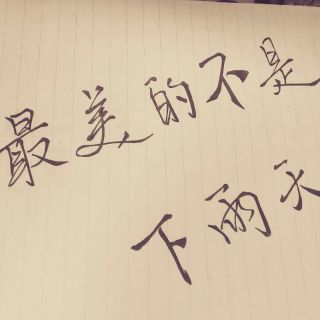 最美的不是
下雨天